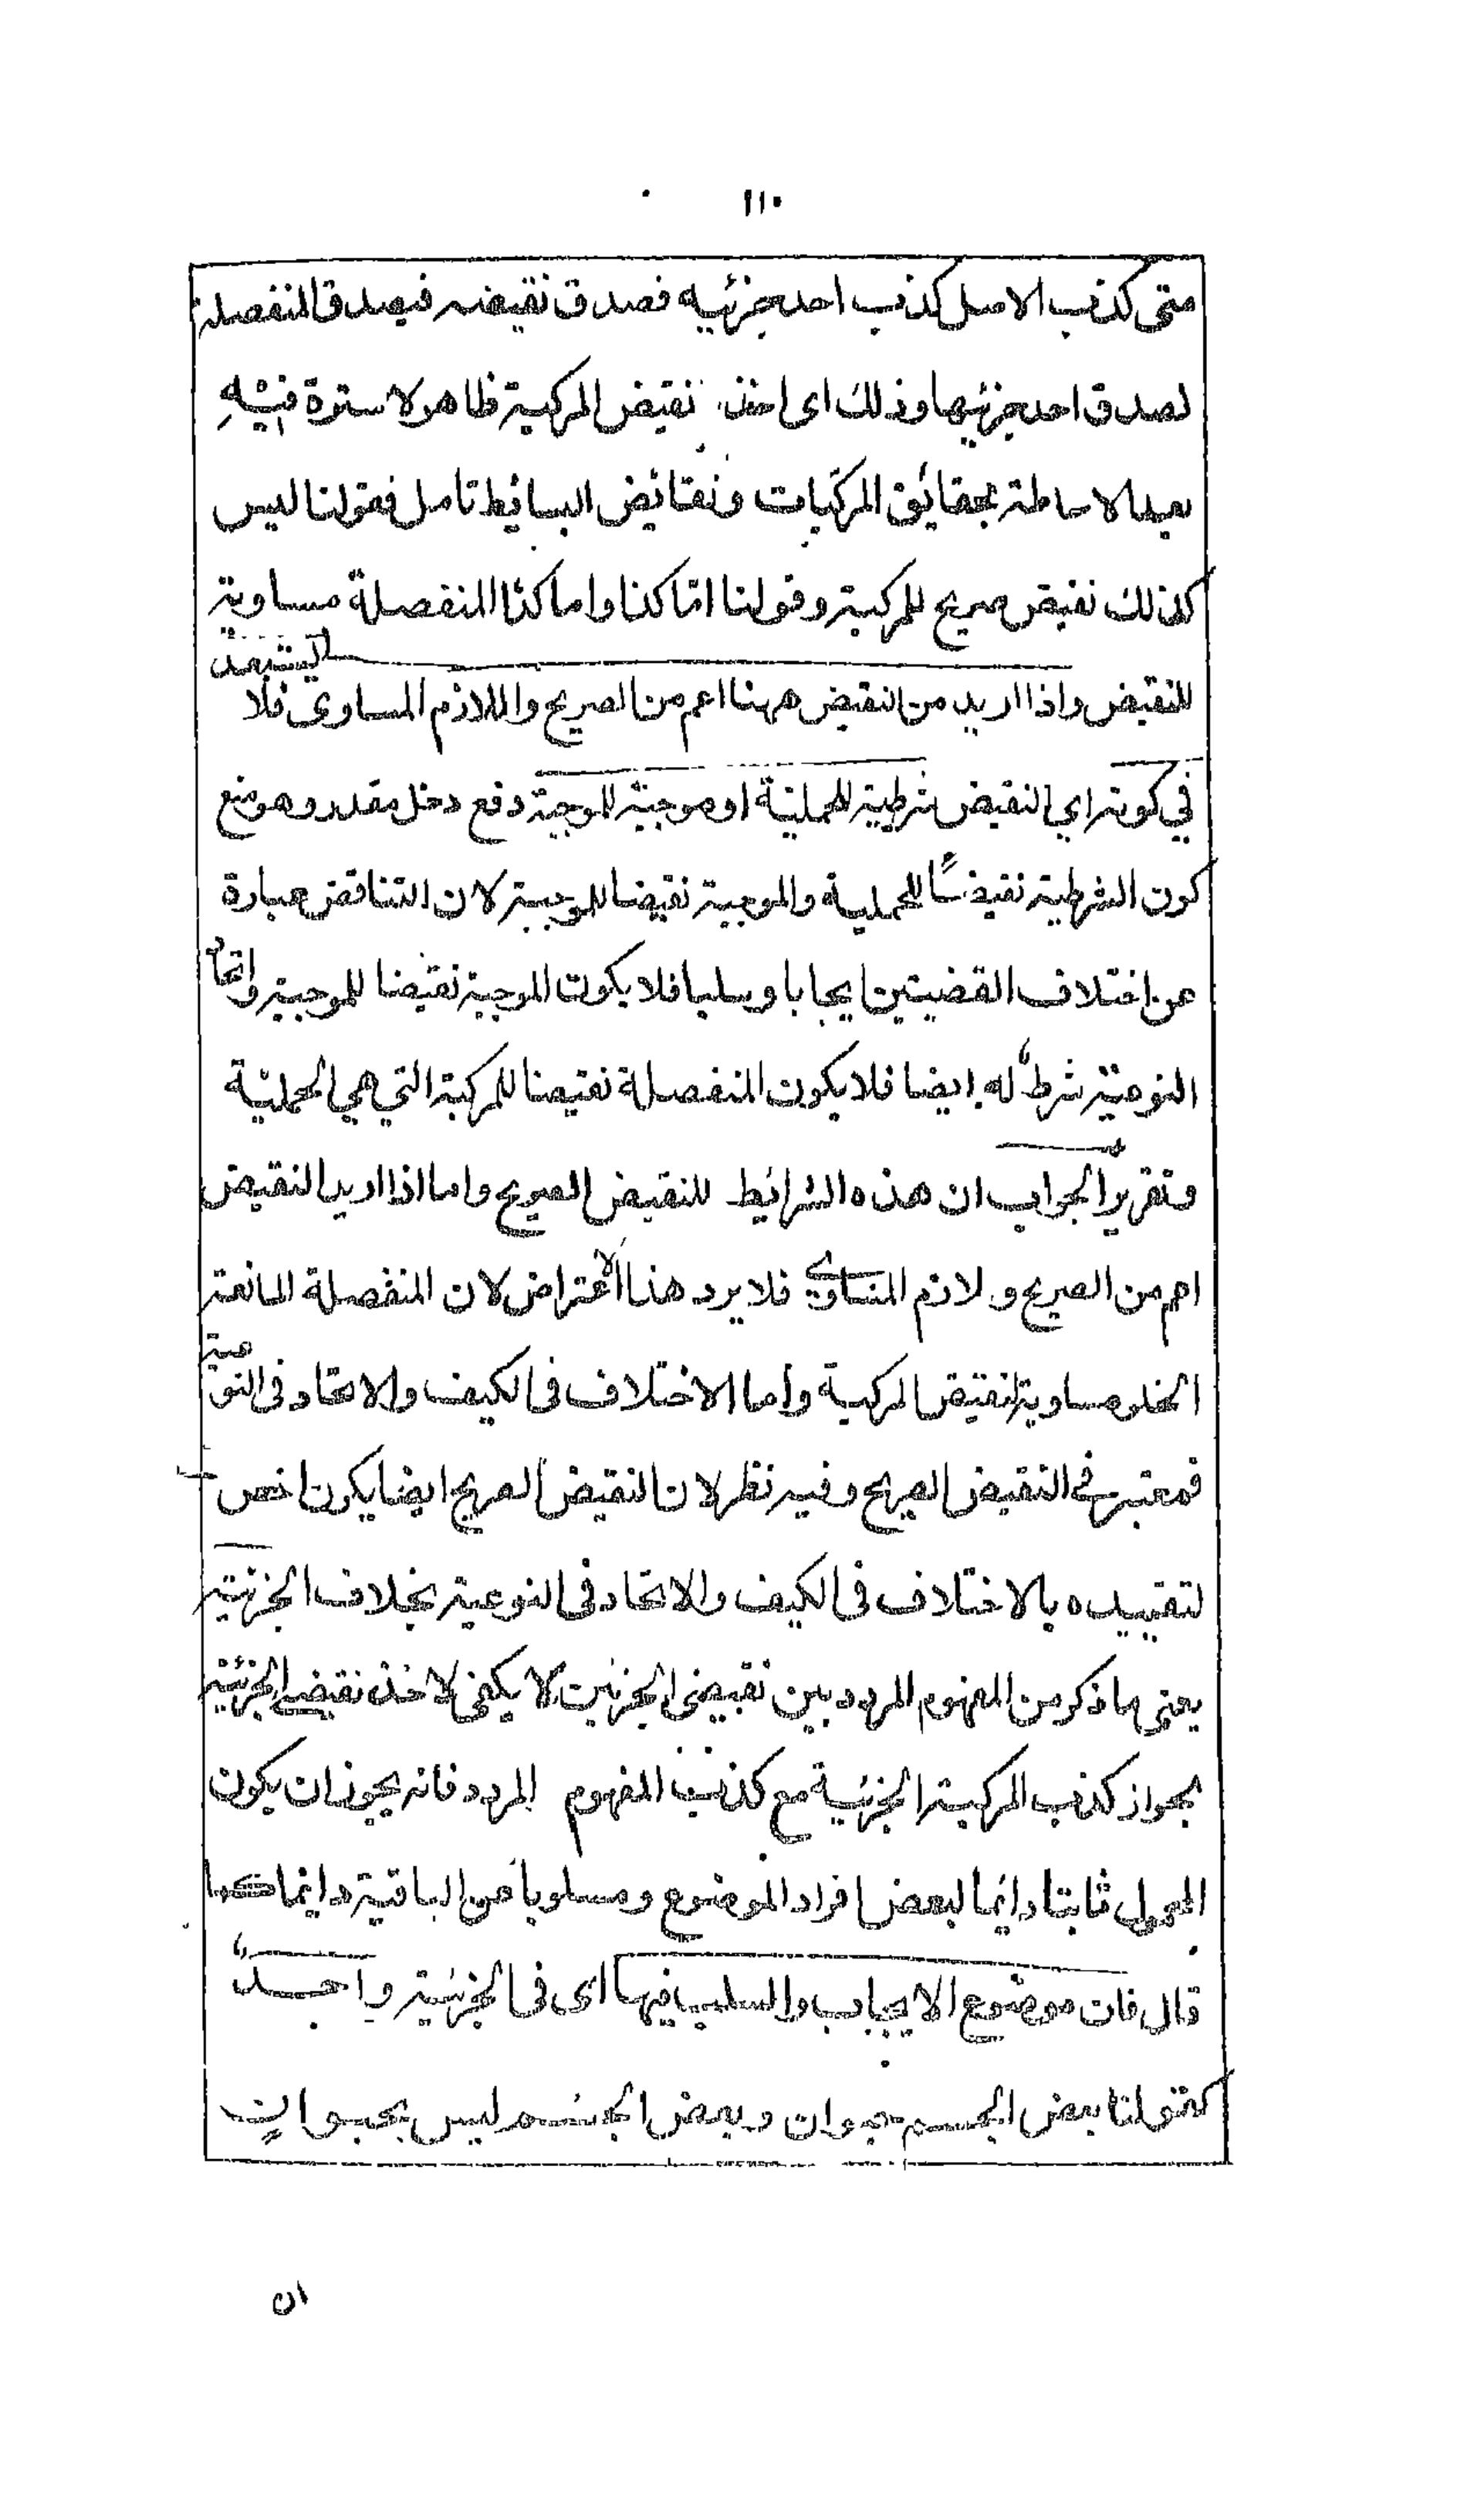 ١١٠
متى كذب الاصل كذب احد جزئيه فصدق نقيضه فيصدق المنفصلة
لصدق احد جزئيها وذلك اى اخذ نقيض المركبة ظاهر لا سترة فيه
بعد الاحاطة بحقايق المركبات ونقائض البسائط تامل فقولنا ليس
كذلك نقيض صريح للمركبة وقولنا اما كذا واما كذا المنفصلة مساوية
للنقيض واذا اريد من النقيض ههنا اعم من الصريح واللازم المساوى فلا يستبعد
في كونه اي النقيض شرطية للحملية او موجبة للموجبة دفع دخل مقدر وهو منع
كون الشرطية نقيضًا للحملية والموجبة نقيضا للموجبة لان التناقض عبارة
عن اختلاف القضيتين ايجابا وسلبا فلا يكون الموجبة نقيضا للموجبة واتحاد
النوعية شرط له ايضا فلا يكون المنفصلة نقيضا للمركبة التي هي الحملية
وتقرير الجواب ان هذه الشرائط للنقيض الصريح واما اذا اريد النقيض
اعم من الصريح و لازم المساوي فلا يرد هذا الاعتراض لان المنفصلة المانعة
الخلو مساوية لنقيض المركبة واما الاختلاف فى الكيف والاتحاد فى النوعية
فمعتبر فى النقيض الصريح وفيه نظر لان النقيض الصريح ايضا يكون اخص
لتقييده بالاختلاف فى الكيف والاتحاد فى النوعية بخلاف الجزئية
يعنى ما ذكر من المفهوم المردد بين نقيضى الجزئين لا يكفى لاخذ نقيض الجزئية
لجواز كذب المركبة الجزئية مع كذب المفهوم المردد فانه يجوز ان يكون
المحمول ثابتا دائما لبعض افراد الموضوع ومسلوبا عن الباقية دائما كما
قال فان موضوع الايجاب والسلب فيها اى فى الجزئية واحد
كقولنا بعض الجسم حيوان وبعض الجسم ليس بحيوان
ان